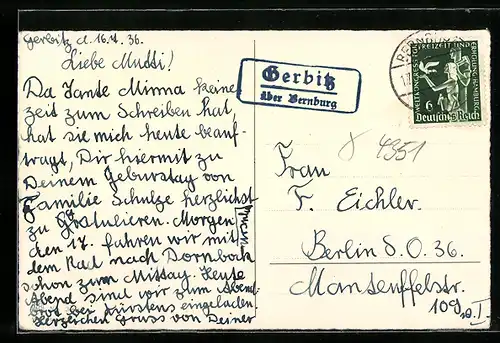 Gerbitz d. 16.7.36.
Liebe Mutti!
Da Tante Minna keine
Zeit zum Schreiben hat,
hat sie mich heute beauf-
tragt, Dir hiermit zu
Deinem Geburstag von
Familie Schulze herzlichst
zu Gratulieren. Morgen
den 17. fahren wir mit
dem Rad nach Dornbock
schon zum Mittag. Heute
Abend sind wir zum Abend-
brot bei Fürstens eingeladen.
Herzlichen Gruss von Deiner
Gerbitz
über Bernburg
BERNBURG
WELTKONGRESS FÜR FREIZEIT UND ERHOLUNG HAMBURG
6
Deutsches Reich
4951
Frau
F. Eichler.
Berlin S.O. 36.
Manteuffelstr.
109 I.